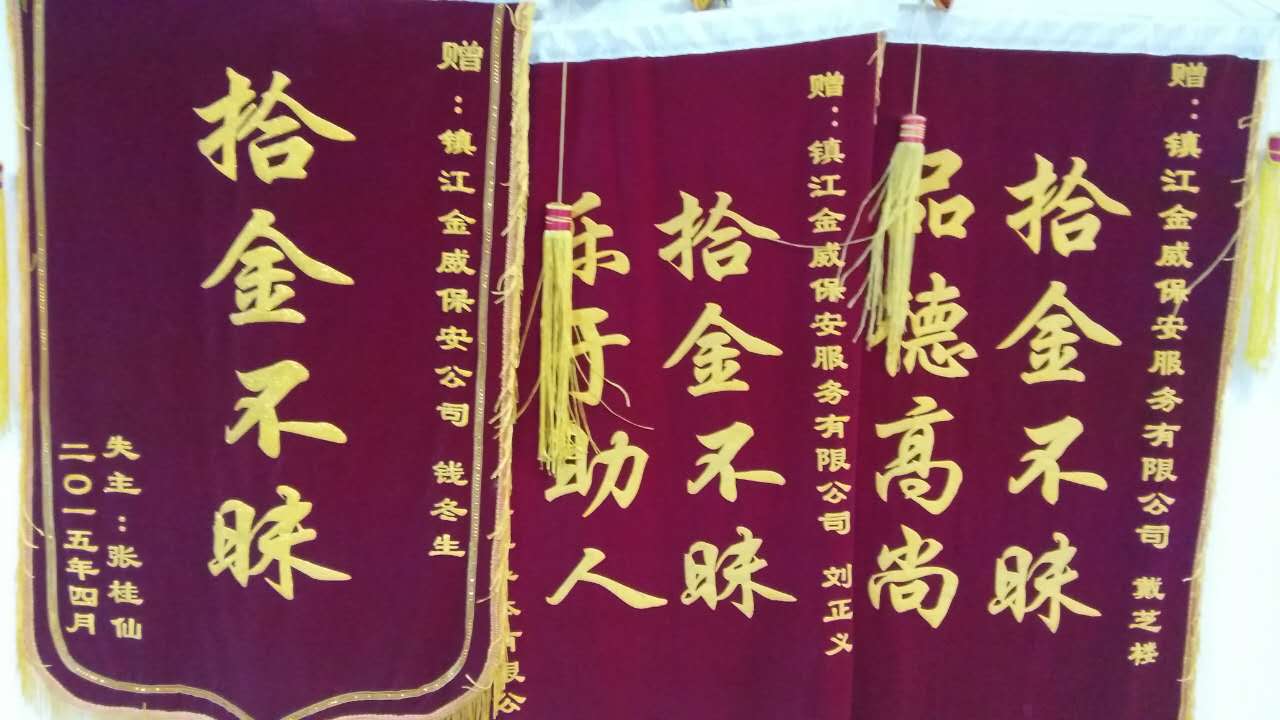 赠：镇江金威保安公司 钱冬生
拾金不昧
失主：张桂仙
二〇一五年四月
赠：镇江金威保安服务有限公司 刘正义
拾金不昧
乐于助人
有限公
赠：镇江金威保安服务有限公司 戴芝楼
拾金不昧
品德高尚